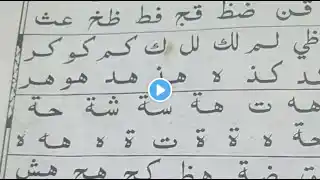 قن ضظ قج فط ظخ عث
ظي لم لك لل ك كم كو كر
كد كذ ه هذ هد هو هر
هه ت هة سة شة حة
حة ة ة ة ت ة ه هه ة
ضة هظ كح هج هش